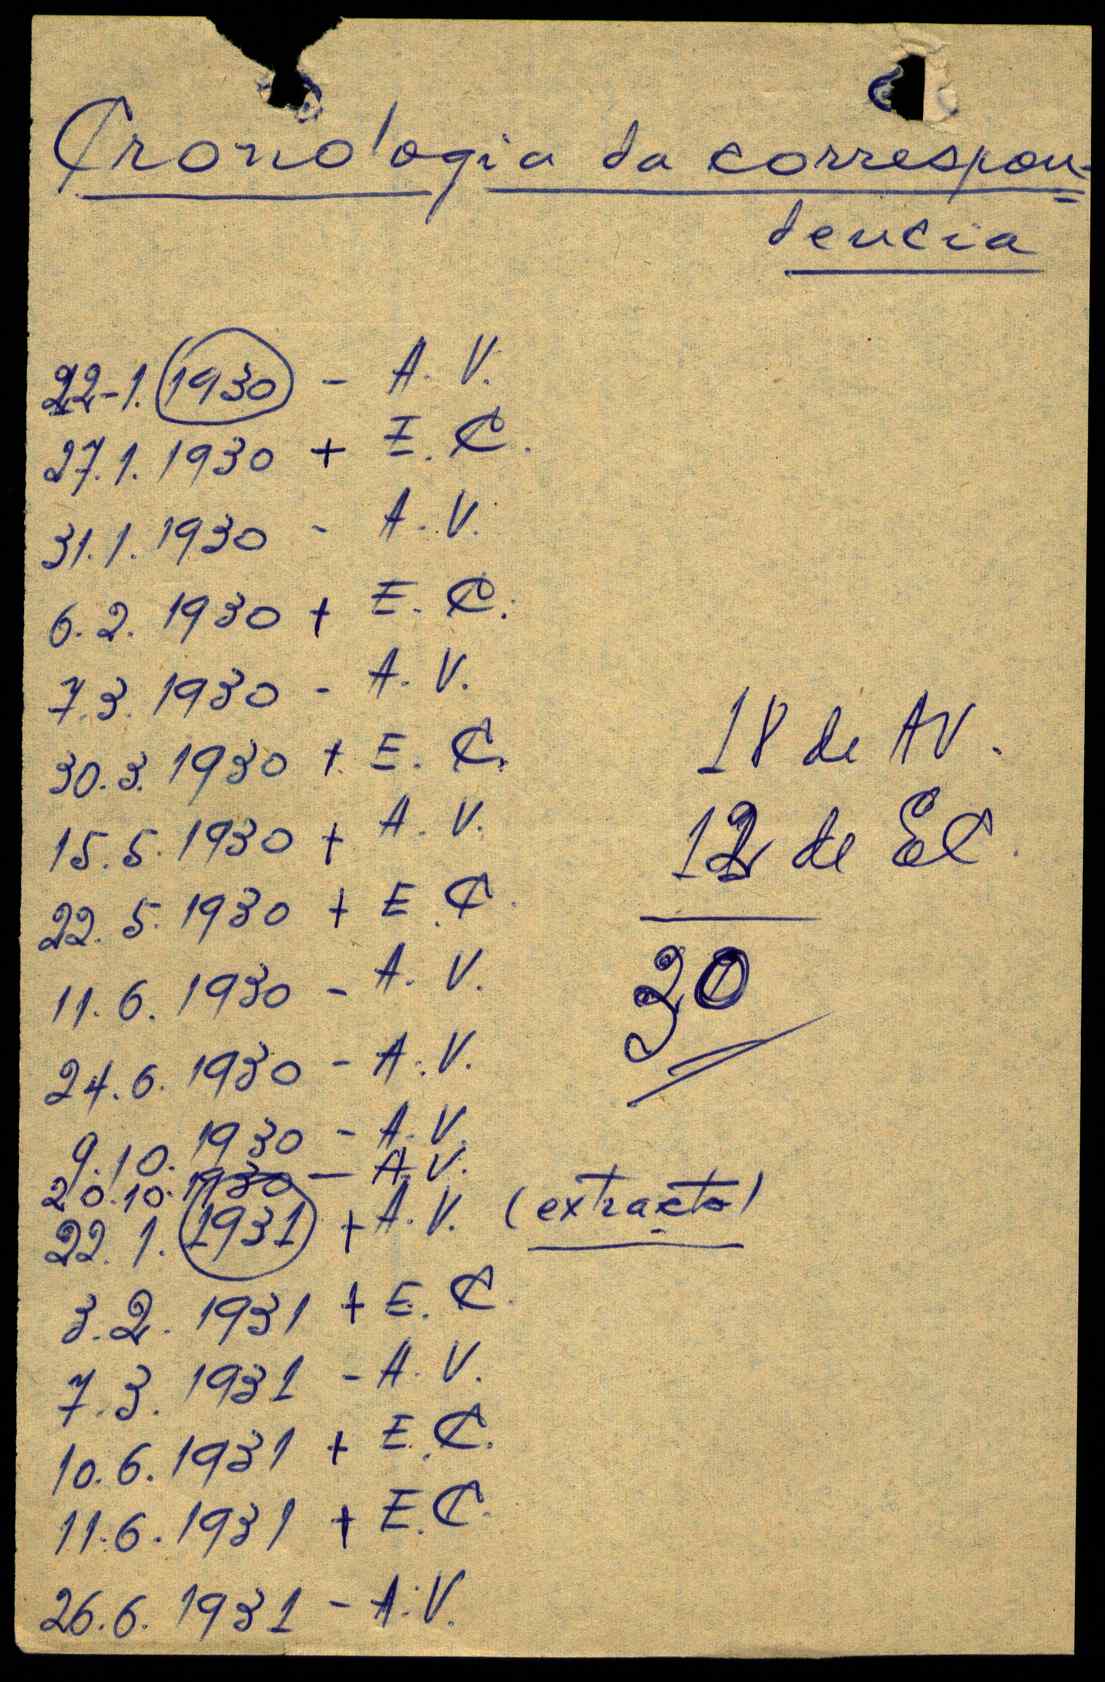 Cronologia da correspon=
dencia
22-1.1930 - A. V.
27.1.1930 + E. C.
31.1.1930 - A. V.
6.2.1930 + E. C.
7.3.1930 - A. V.
30.3.1930 + E. C.
15.5.1930 + A. V.
22.5.1930 + E. C.
11.6.1930 - A. V.
24.6.1930 - A. V.
9.10.1930 - A. V.
20.10.1930 - A. V.
22.1.1931 + A. V. (extracto)
3.2.1931 + E. C.
7.3.1931 - A. V.
10.6.1931 + E. C.
11.6.1931 + E. C.
26.6.1931 - A. V.
18 de AV.
12 de EC.
30